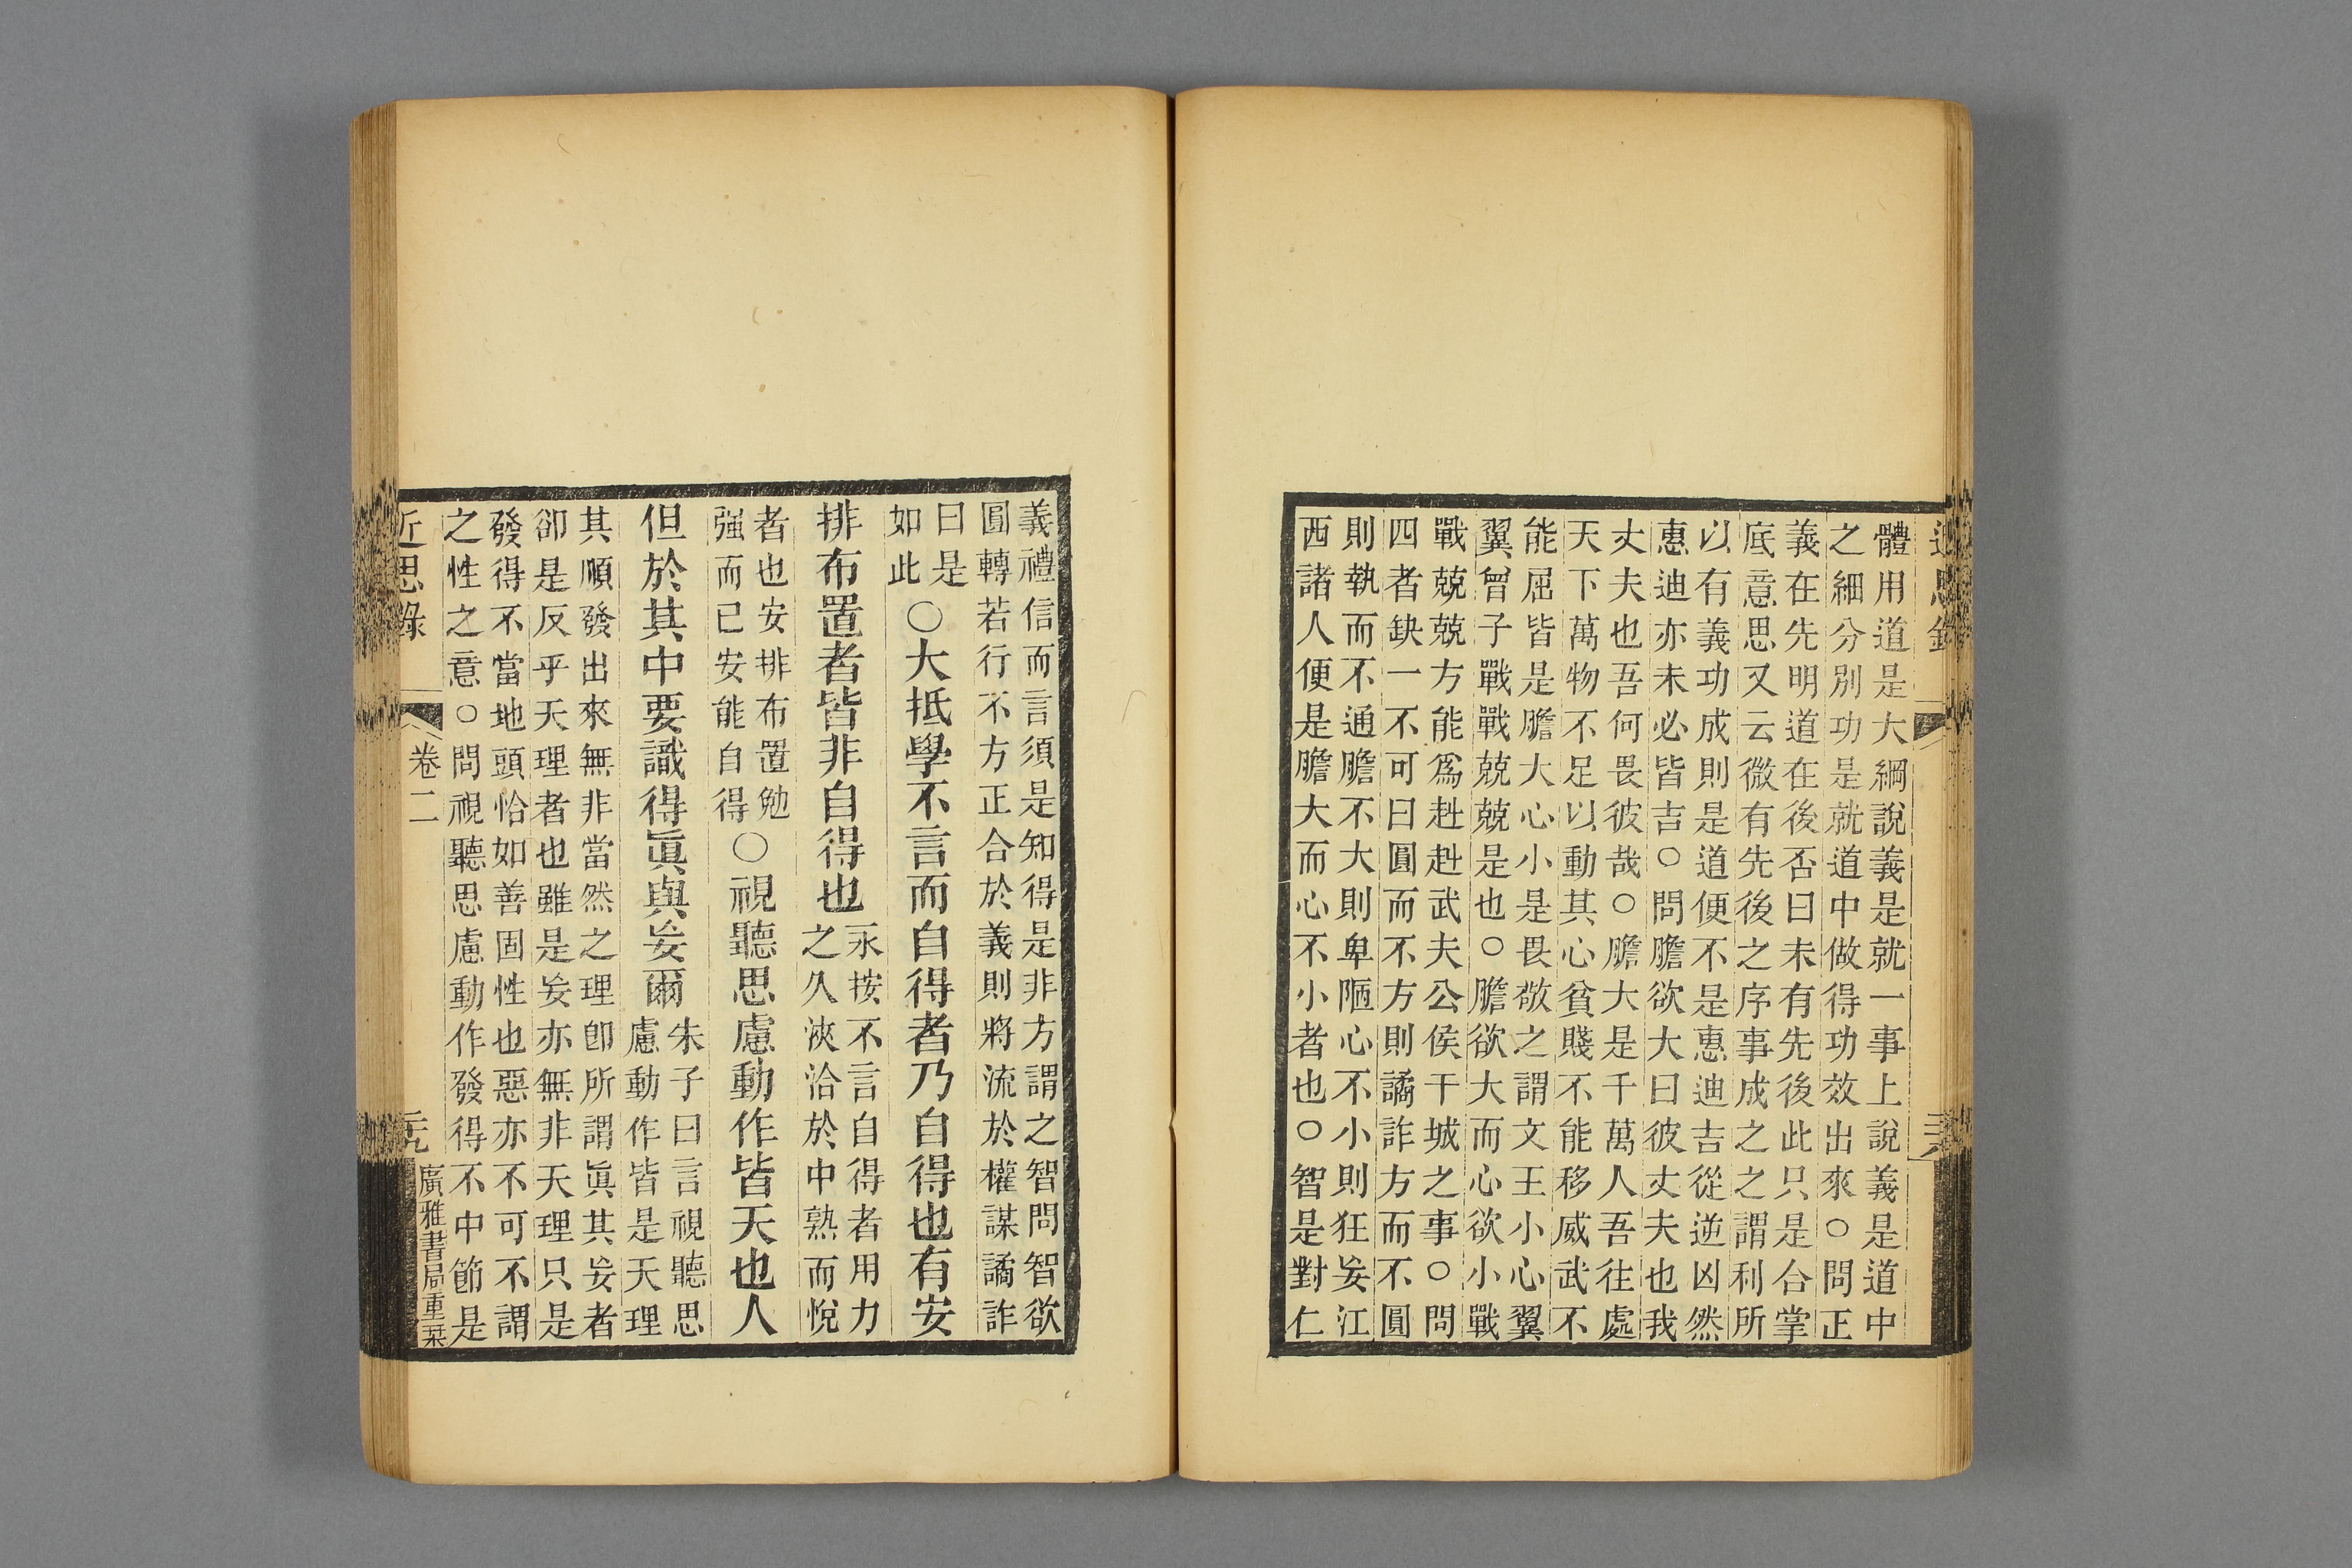 近思錄
體用道是大綱說義是就一事上說義是道中
之細分別功是就道中做得功效出來○問正
義在先明道在後否曰未有先後此只是合掌
底意思又云微有先後之序事成之之謂利所
以有義功成則是道便不是惠迪吉從逆凶然
惠迪亦未必皆吉○問膽欲大曰彼丈夫也我
丈夫也吾何畏彼哉○膽大是千萬人吾往處
天下萬物不足以動其心貧賤不能移威武不
能屈皆是膽大心小是畏敬之謂文王小心翼
翼曾子戰戰兢兢是也○膽欲大而心欲小戰
戰兢兢方能爲赳赳武夫公侯干城之事○問
四者缺一不可曰圓而不方則譎詐方而不圓
則執而不通膽不大則卑陋心不小則狂妄江
西諸人便是膽大而心不小者也○智是對仁
義禮信而言須是知得是非方謂之智問智欲
圓轉若行不方正合於義則將流於權謀譎詐
曰是
如此
○大抵學不言而自得者乃自得也有安
排布置者皆非自得也
永按不言自得者用力
之久浹洽於中熟而悅
者也安排布置勉
强而已安能自得
○視聽思慮動作皆天也人
但於其中要識得眞與妄爾
朱子曰言視聽思
慮動作皆是天理
其順發出來無非當然之理卽所謂眞其妄者
卻是反乎天理者也雖是妄亦無非天理只是
發得不當地頭恰如善固性也惡亦不可不謂
之性之意○問視聽思慮動作發得不中節是
近思錄
卷二
廣雅書局重栞